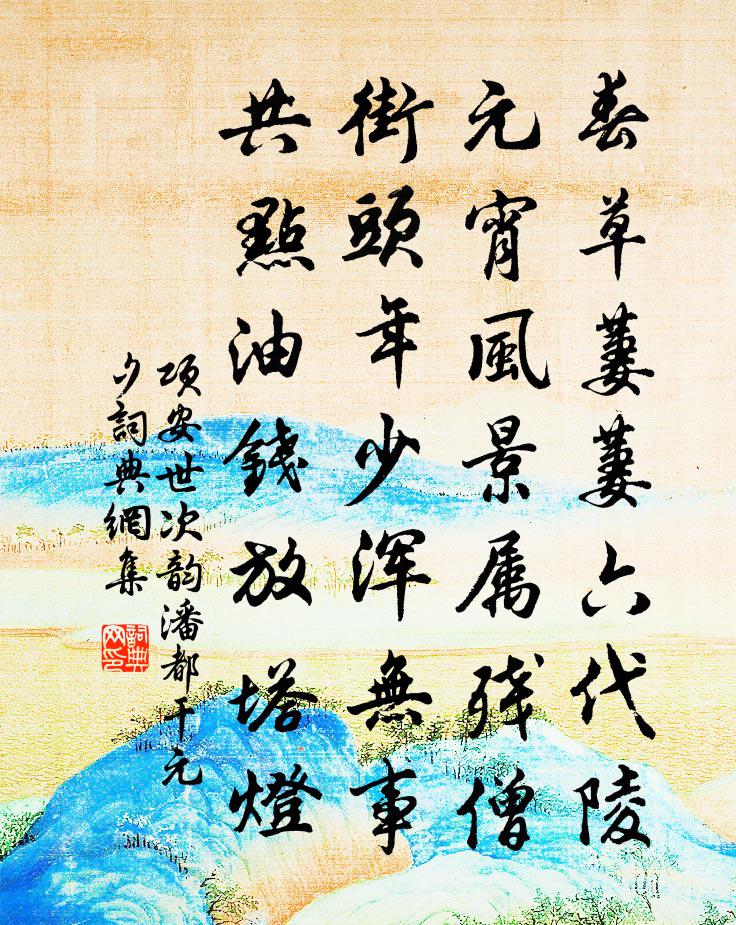 春草萋萋六代陵
元宵風景属残僧
街頭年少渾無事
共點油錢放塔燈
项安世次韵潘都干元
夕詞典網集
詞典
网印